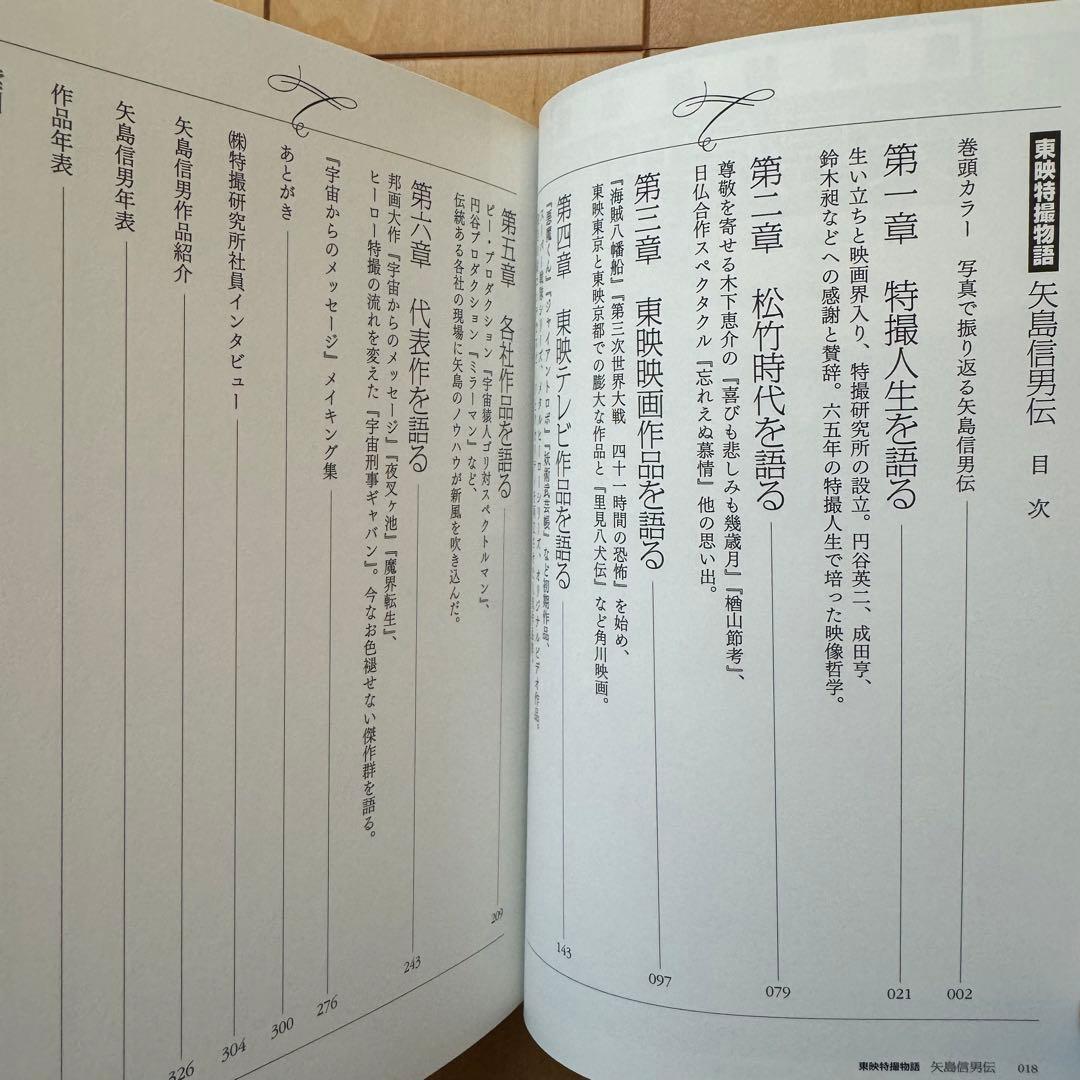 東映特撮物語 矢島信男伝 目次
巻頭カラー 写真で振り返る矢島信男伝 002
第一章 特撮人生を語る 021
生い立ちと映画界入り、特撮研究所の設立。円谷英二、成田亨、
鈴木昶などへの感謝と賛辞。六五年の特撮人生で培った映像哲学。
第二章 松竹時代を語る 079
尊敬を寄せる木下恵介の『喜びも悲しみも幾歳月』『楢山節考』、
日仏合作スペクタクル『忘れえぬ慕情』他の思い出。
第三章 東映映画作品を語る 097
『海賊八幡船』『第三次世界大戦 四十一時間の恐怖』を始め、
東映東京と東映京都での膨大な作品と『里見八犬伝』など角川映画。
第四章 東映テレビ作品を語る 143
『悪魔くん』『ジャイアントロボ』『妖術武芸帳』など初期作品、
戦隊シリーズ、メタルヒーローシリーズ、オリジナルビデオ作品。
東映特撮物語 矢島信男伝 018
第五章 各社作品を語る 209
ピー・プロダクション『宇宙猿人ゴリ対スペクトルマン』、
円谷プロダクション『ミラーマン』など、
伝統ある各社の現場に矢島のノウハウが新風を吹き込んだ。
第六章 代表作を語る 243
邦画大作『宇宙からのメッセージ』『夜叉ヶ池』『魔界転生』、
ヒーロー特撮の流れを変えた『宇宙刑事ギャバン』。今なお色褪せない傑作群を語る。
『宇宙からのメッセージ』メイキング集 276
あとがき 300
㈱特撮研究所社員インタビュー 304
矢島信男作品紹介 326
矢島信男年表
作品年表